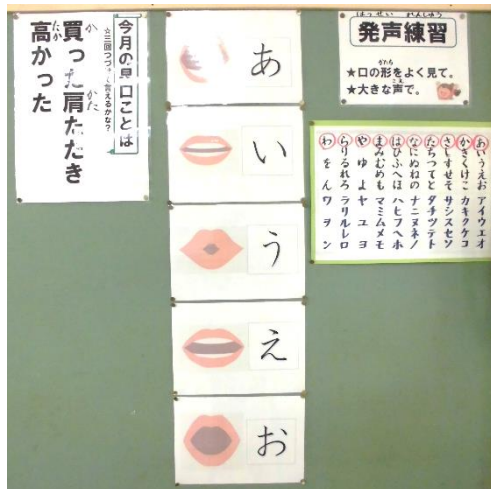 今月の早口ことば
☆三回つづけて言えるかな?
買った肩たたき
か かた
高かった
たか
あ
い
う
え
お
はっせい れんしゅう
発声練習
かたち
★口の形をよく見て。
こえ
★大きな声で。
あいうえお アイウエオ
かきくけこ カキクケコ
さしすせそ サシスセソ
たちつてと タチツテト
なにぬねの ナニヌネノ
はひふへほ ハヒフヘホ
まみむめも マミムメモ
や ゆ よ ヤ ユ ヨ
らりるれろ ラリルレロ
わ を ん ワ ヲ ン